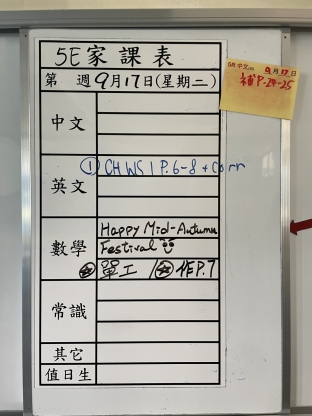 5E家課表
第 週9月17日(星期二)
中文
① CH WS 1 P.6-8 + corr
英文
Happy Mid-Autumn
數學
Festival
單工 / 作P.7
常識
其它
值日生
9月17日
補P.24-25